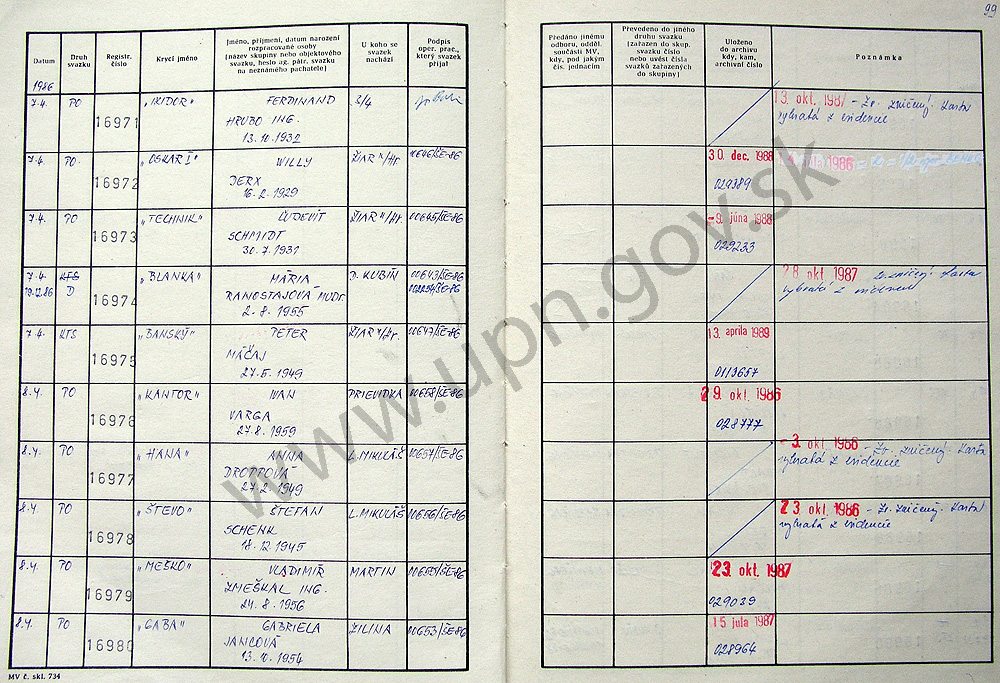 99
Datum
Druh svazku
Registr. číslo
Krycí jméno
Jméno, příjmení, datum narození
rozpracované osoby
(název skupiny nebo objektového
svazku, heslo ag. pátr. svazku
na neznámého pachatele)
U koho se
svazek
nachází
Podpis
oper. prac.,
který svazek
přijal
Předáno jinému
odboru, odděl.
součásti MV,
kdy, pod jakým
čís. jednacím
Převedeno do jiného
druhu svazku
(zařazen do skup.
svazku číslo
nebo uvést čísla
svazků zařazených
do skupiny)
Uloženo
do archivu
kdy, kam,
archivní číslo
Poznámka
1986
7.4. PO 16971 „IXIDOR" FERDINAND 3/4
HRUBO ING.
13.10.1932
13. okt. 1987 - Zv. zničený. Karta
vybratá z evidencie
7.4. PO 16972 „OSKAR I" WILLY ŽIAR n/Hr. 00646/ŠE-86
DERX
16.2.1929
30. dec. 1988
029389
7.4. PO 16973 „TECHNIK" ĽUDEVÍT ŽIAR n/Hr. 00645/ŠE-86
SCHMIDT
30.7.1931
-9. júna 1988
029233
7.4. KTS 16974 „BLANKA" MÁRIA D. KUBÍN 00643/ŠE-86
19.12.86 D RANOSTAJOVÁ MUDr.
2.8.1955
28. okt. 1987 Zv. zničený. Karta
vybratá z evidencie
7.4. KTS 16975 „BANSKÝ" PETER ŽIAR n/Hr. 00647/ŠE-86
MÁČAJ
27.5.1949
13. apríla 1989
0113657
8.4. PO 16976 „KANTOR" IVAN PRIEVIDZA 00658/ŠE-86
VARGA
27.8.1959
29. okt. 1986
028777
8.4. PO 16977 „HANA" ANNA L. MIKULÁŠ 00657/ŠE-86
DROPPOVÁ
27.2.1949
-3. okt. 1986 - Zv. zničený. Karta
vybratá z evidencie
8.4. PO 16978 „ŠTEVO" ŠTEFAN L. MIKULÁŠ 00656/ŠE-86
SCHENK
18.12.1945
23. okt. 1986 - Zv. zničený. Karta
vybratá z evidencie
8.4. PO 16979 „MEŠKO" VLADIMÍR MARTIN 00655/ŠE-86
ZMEŠKAL ING.
24.8.1956
23. okt. 1987
029039
8.4. PO 16980 „GABA" GABRIELA ŽILINA 00653/ŠE-86
JANCOVÁ
13.10.1954
15. júla 1987
028964
MV č. skl. 734
www.upn.gov.sk